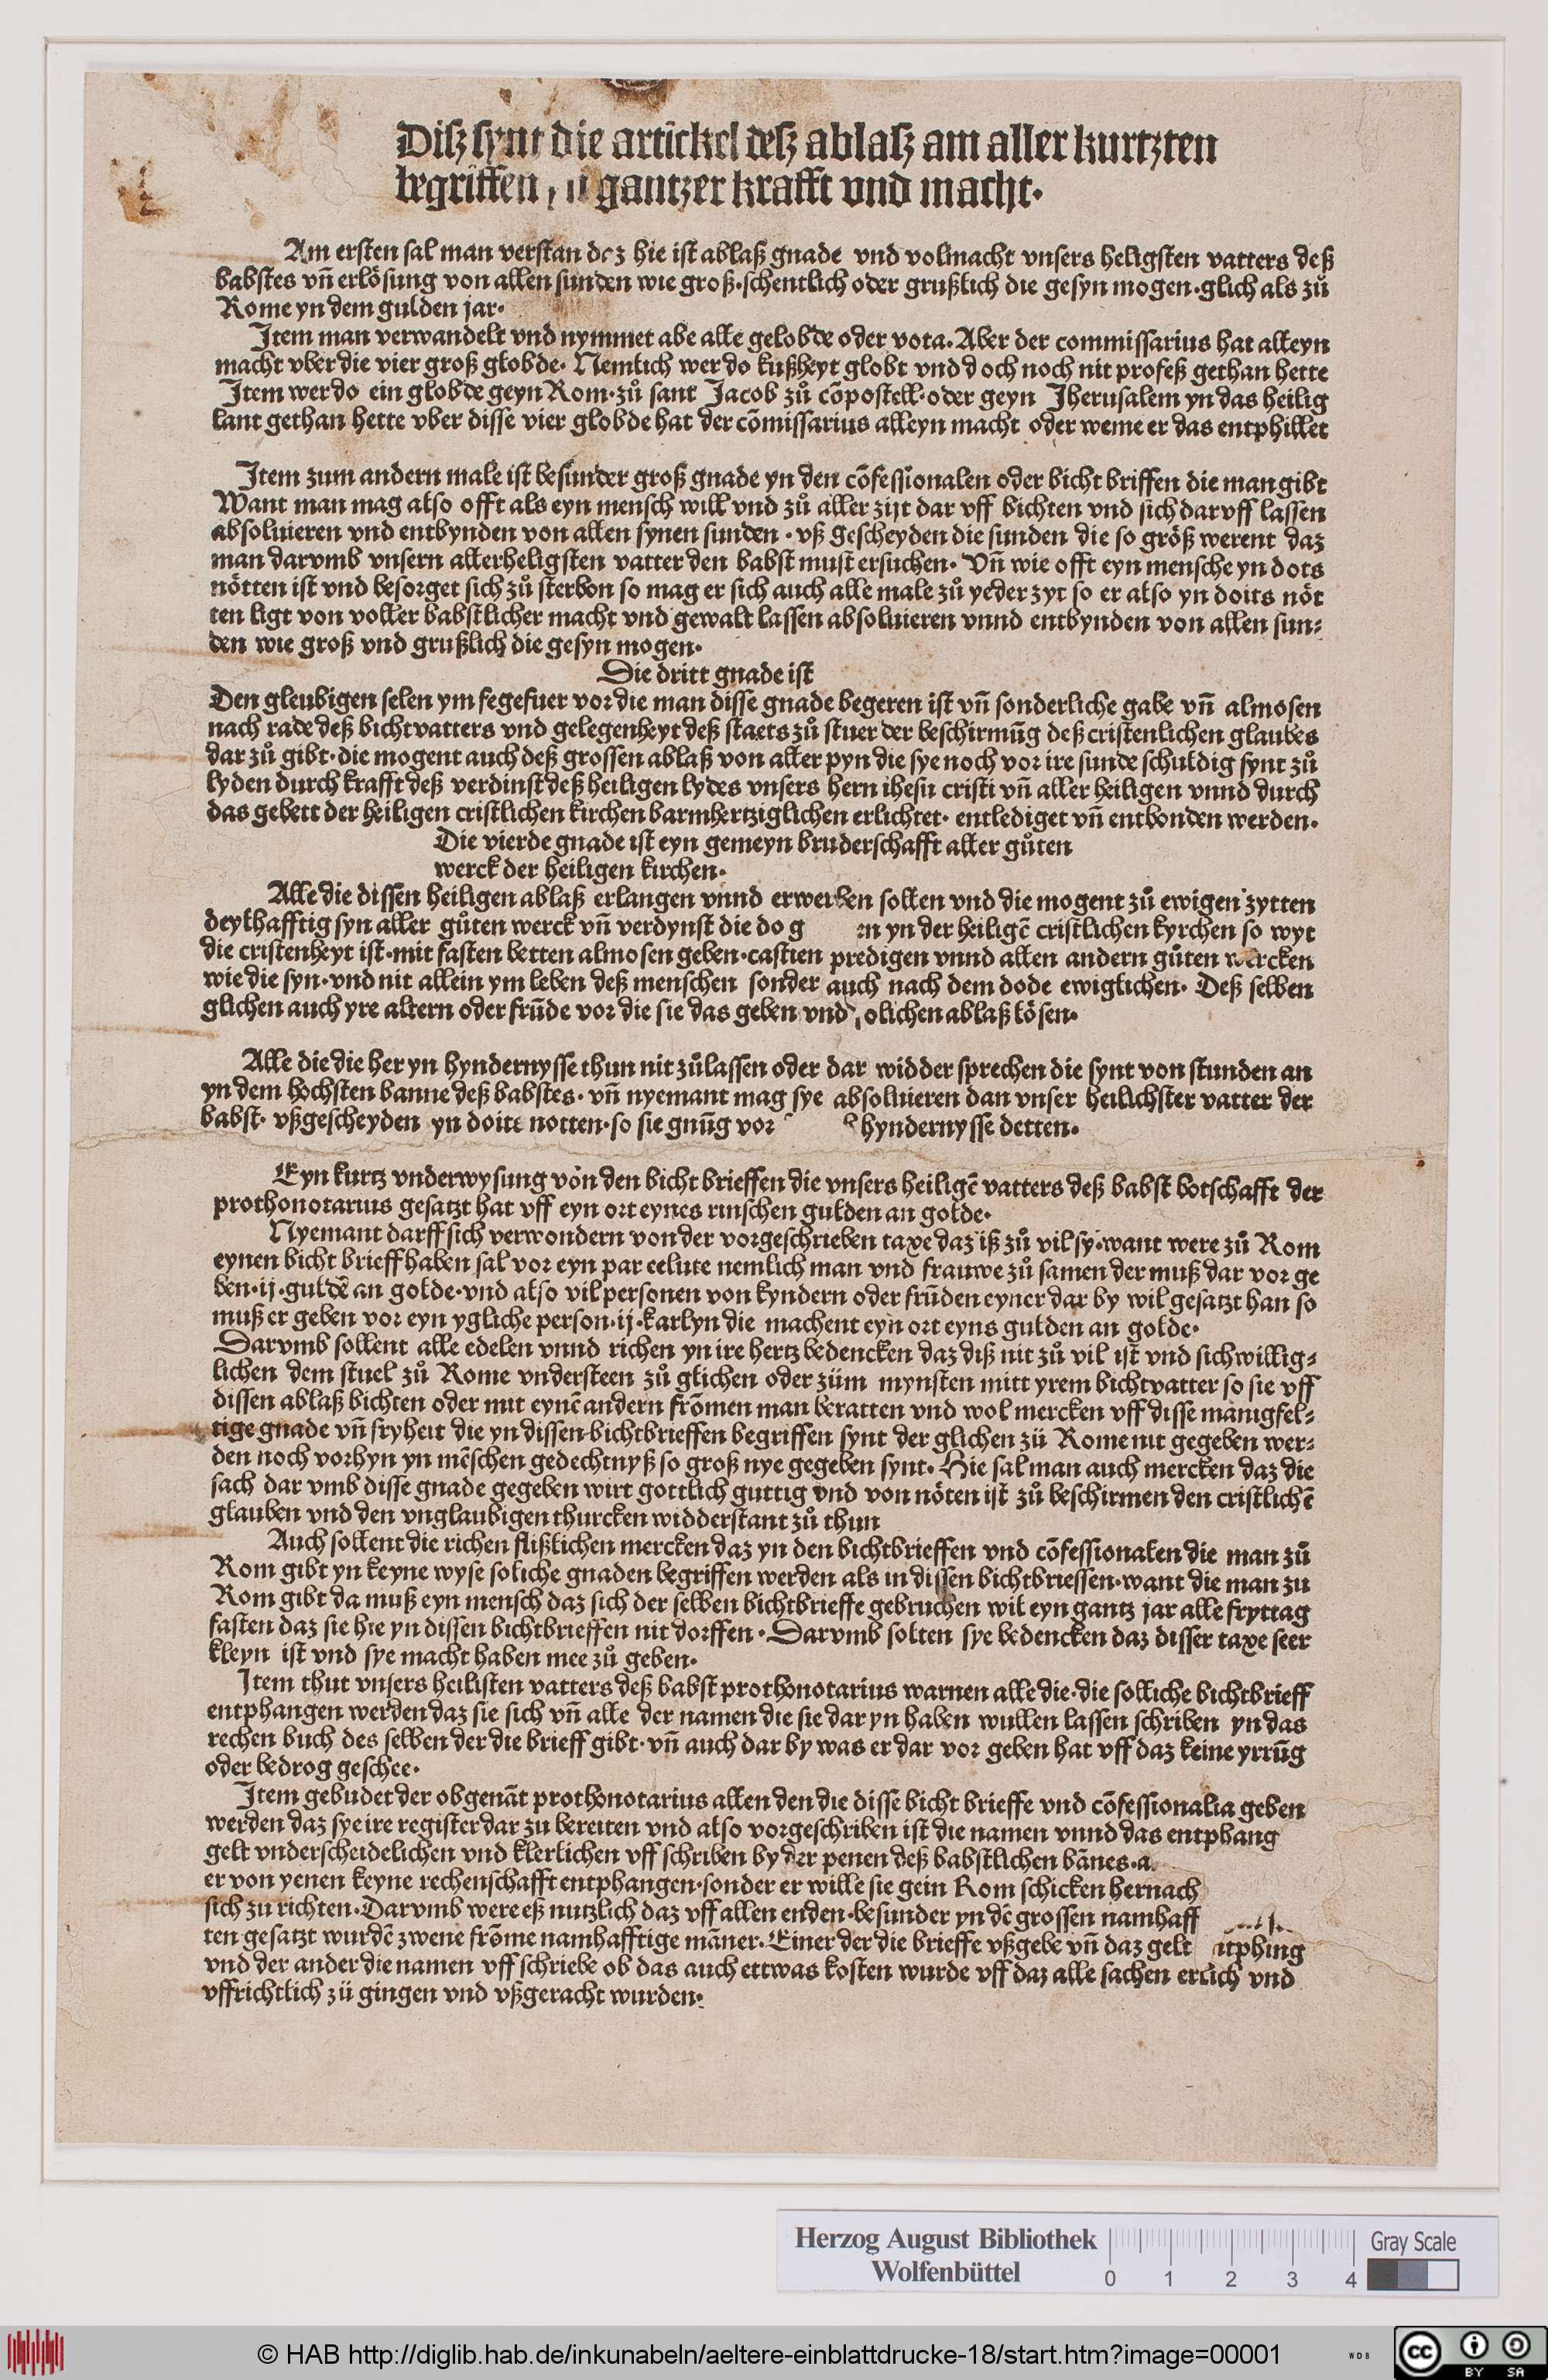 Diſz ſynt die artickel deſz ablaſz am aller kurtzten
begriffen gantzer krafft vnd macht·
Am erſten ſal man verſtan daz hie iſt ablaß gnade vnd volmacht vnſers heligſten vatters deß
babſtes vn̄ erlöſung von allen ſunden wie groß·ſchentlich oder grußlich die geſyn mogen·glich als zů
Rome yn dem gulden jar·
Item man verwandelt vnd nymmet abe alle gelobde oder vota·Aber der commiſſarius hat alleyn
macht vber die vier groß globde· Nemlich wer do kußheyt globt vnd doch noch nit profeß gethan hette
Item wer do ein globde geyn Rom·zů ſant Jacob zů cōpoſtell·oder geyn Jheruſalem yn das heilig
lant gethan hette vber diſſe vier globde hat der cōmiſſarius alleyn macht oder weme er das entphillet
Item zum andern male iſt beſunder groß gnade yn den cōfeſſionalen oder bicht briffen die man gibt
Want man mag alſo offt als eyn menſch will vnd zů aller zijt dar vff bichten vnd ſich daruff laſſen
abſoluieren vnd entbynden von allen ſynen ſunden · vß geſcheyden die ſunden die ſo größ werent daz
man darvmb vnſern allerheligſten vatter den babſt muſt erſuchen· Vn̄ wie offt eyn menſche yn dots
nötten iſt vnd beſorget ſich zů ſterbon ſo mag er ſich auch alle male zů yeder zyt ſo er alſo yn doits nöt
ten ligt von voller babſtlicher macht vnd gewalt laſſen abſoluieren vnnd entbynden von allen ſun⸗
den wie groß vnd grußlich die geſyn mogen·
Die dritt gnade iſt
Den gleubigen ſelen ym fegefuer vor die man diſſe gnade begeren iſt vn̄ ſonderliche gabe vn̄ almoſen
nach rade deß bichtvatters vnd gelegenheyt deß ſtaets zů ſtuer der beſchirmūg deß criſtenlichen glaubes
dar zů gibt·die mogent auch deß groſſen ablaß von aller pyn die ſye noch vor ire ſunde ſchuldig ſynt zů
lyden durch krafft deß verdinſt deß heiligen lydes vnſers hern iheſu criſti vn̄ aller heiligen vnnd durch
das gebett der heiligen criſtlichen kirchen barmhertziglichen erlichtet· entlediget vn̄ entbonden werden·
Die vierde gnade iſt eyn gemeyn bruderſchafft aller gůten
werck der heiligen kirchen·
Alle die diſſen heiligen ablaß erlangen vnnd erwerben ſollen vnd die mogent zů ewigen zytten
deylhafftig ſyn aller gůten werck vn̄ verdynſt die do g en yn der heiligē criſtlichen kyrchen ſo wyt
die criſtenheyt iſt·mit faſten betten almoſen geben·caſtien predigen vnnd allen andern gůten wercken
wie die ſyn·vnd nit allein ym leben deß menſchen ſonder auch nach dem dode ewiglichen· Deß ſelben
glichen auch yre altern oder frūde vor die ſie das geben vnd ſolichen ablaß löſen·
Alle die die her yn hynderny​ſſe thun nit zůlaſſen oder dar widder ſprechen die ſynt von ſtunden an
yn dem hochſten banne deß babſtes· vn̄ nyemant mag ſye abſoluieren dan vnſer heilichſter vatter der
babſt· vßgeſcheyden yn doite notten·ſo ſie gnūg vor hynderny​ſſe detten·
Eyn kurtz vnderwyſung von den bicht brieffen die vnſers heiligē vatters deß babſt botſchafft der
prothonotarius geſatzt hat vff eyn ort eynes rinſchen gulden an golde·
Nyemant darff ſich verwondern von der vorgeſchrieben taxe daz iß zů vil ſy·want were zů Rom
eynen bicht brieff haben ſal vor eyn par eelute nemlich man vnd frauwe zů ſamen der muß dar vor ge
ben·ij·guldē an golde·vnd alſo vil perſonen von kyndern oder frūden eyner dar by wil geſatzt han ſo
muß er geben vor eyn ygliche perſon·ij·karlyn die machent eyn ort eyns gulden an golde·
Darvmb ſollent alle edelen vnnd richen yn ire hertz bedencken daz diß nit zů vil iſt vnd ſich willig⸗
lichen dem ſtuel zů Rome vnderſteen zů glichen oder züm mynſten mitt yrem bichtvatter ſo ſie vff
diſſen ablaß bichten oder mit eynē andern frōmen man beratten vnd wol mercken vff diſſe manigfel⸗
tige gnade vn̄ fryheit die yn diſſen bichtbrieffen begriffen ſynt der glichen zü Rome nit gegeben wer⸗
den noch vorhyn yn mēſchen gedechtnyß ſo groß nye gegeben ſynt· Hie ſal man auch mercken daz die
ſach dar vmb diſſe gnade gegeben wirt gottlich guttig vnd von nöten iſt zů beſchirmen den criſtlichē
glauben vnd den vnglaubigen thurcken widderſtant zů thun
Auch ſollent die richen flißlichen mercken daz yn den bichtbrieffen vnd cōfeſſionalen die man zů
Rom gibt yn keyne wyſe ſoliche gnaden begriffen werden als in diſſen bichtbrieſſen·want die man zu
Rom gibt da muß eyn menſch daz ſich der ſelben bichtbrieffe gebruchen wil eyn gantz jar alle fryttag
faſten daz ſie hie yn diſſen bichtbrieffen nit dorffen · Darvmb ſolten ſye bedencken daz diſſer taxe ſeer
kleyn iſt vnd ſye macht haben mee zů geben·
Item thut vnſers heiliſten vatters deß babſt prothonotarius warnen alle die·die ſolliche bichtbrieff
entphangen werden daz ſie ſich vn̄ alle der namen die ſie dar yn haben wullen laſſen ſchriben yn das
rechen buch des ſelben der die brieff gibt·vn̄ auch dar by was er dar vor geben hat vff daz keine yrrūg
oder bedrog geſchee·
Item gebudet der obgenāt prothonotarius allen den die diſſe bicht brieffe vnd cōfeſſionalia geben
werden daz ſye ire regiſter dar zu bereiten vnd alſo vorgeſchriben iſt die namen vnnd das entphang
gelt vnderſcheidelichen vnd klerlichen vff ſchriben by der penen deß babſtlichen bānes·
er von yenen keyne rechenſchafft entphangen·ſonder er wille ſie gein Rom ſchicken hernach
ſich zu richten·Darvmb were eß nutzlich daz vff allen enden·beſunder yn dē groſſen namhaff
ten geſatzt wurdē zwene frōme namhafftige māner·Einer der die brieffe vßgebe vn̄ daz gelt ntphing
vnd der ander die namen vff ſchriebe ob das auch ettwas koſten wurde vff daz alle ſachen erlich vnd
vffrichtlich zü gingen vnd vßgeracht wurden·
Herzog August Bibliothek
Wolfenbüttel
0 1 2 3 4
Gray Scale
© HAB http://diglib.hab.de/inkunabeln/aeltere-einblattdrucke-18/start.htm?image=00001
WDB
CC BY SA